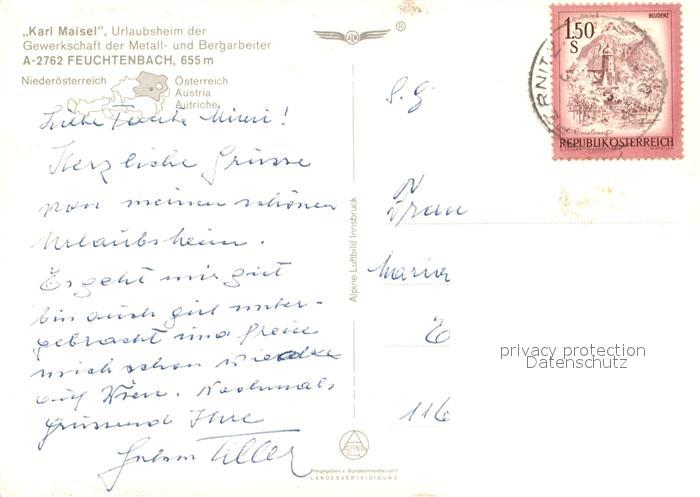 „Karl Maisel", Urlaubsheim der
Gewerkschaft der Metall- und Bergarbeiter
A-2762 FEUCHTENBACH, 655 m
Niederösterreich
Österreich
Austria
Autriche
Liebe Tante Mizzi!
Herzliche Grüsse
von meinen schönen
Urlaubsheim.
Es geht mir gut
bin auch gut unter-
gebracht und freue
mich schon wieder
auf Wien. Nochmals
grüssend Ihre
Tiller
Alpine Luftbild Innsbruck
®
1.50
S
BLUDENZ
REPUBLIK ÖSTERREICH
S. g.
Frau
Maria
E
116
privacy protection
Datenschutz
ALPINE
Freigegeben v. Bundesministerium f.
LANDESVERTEIDIGUNG